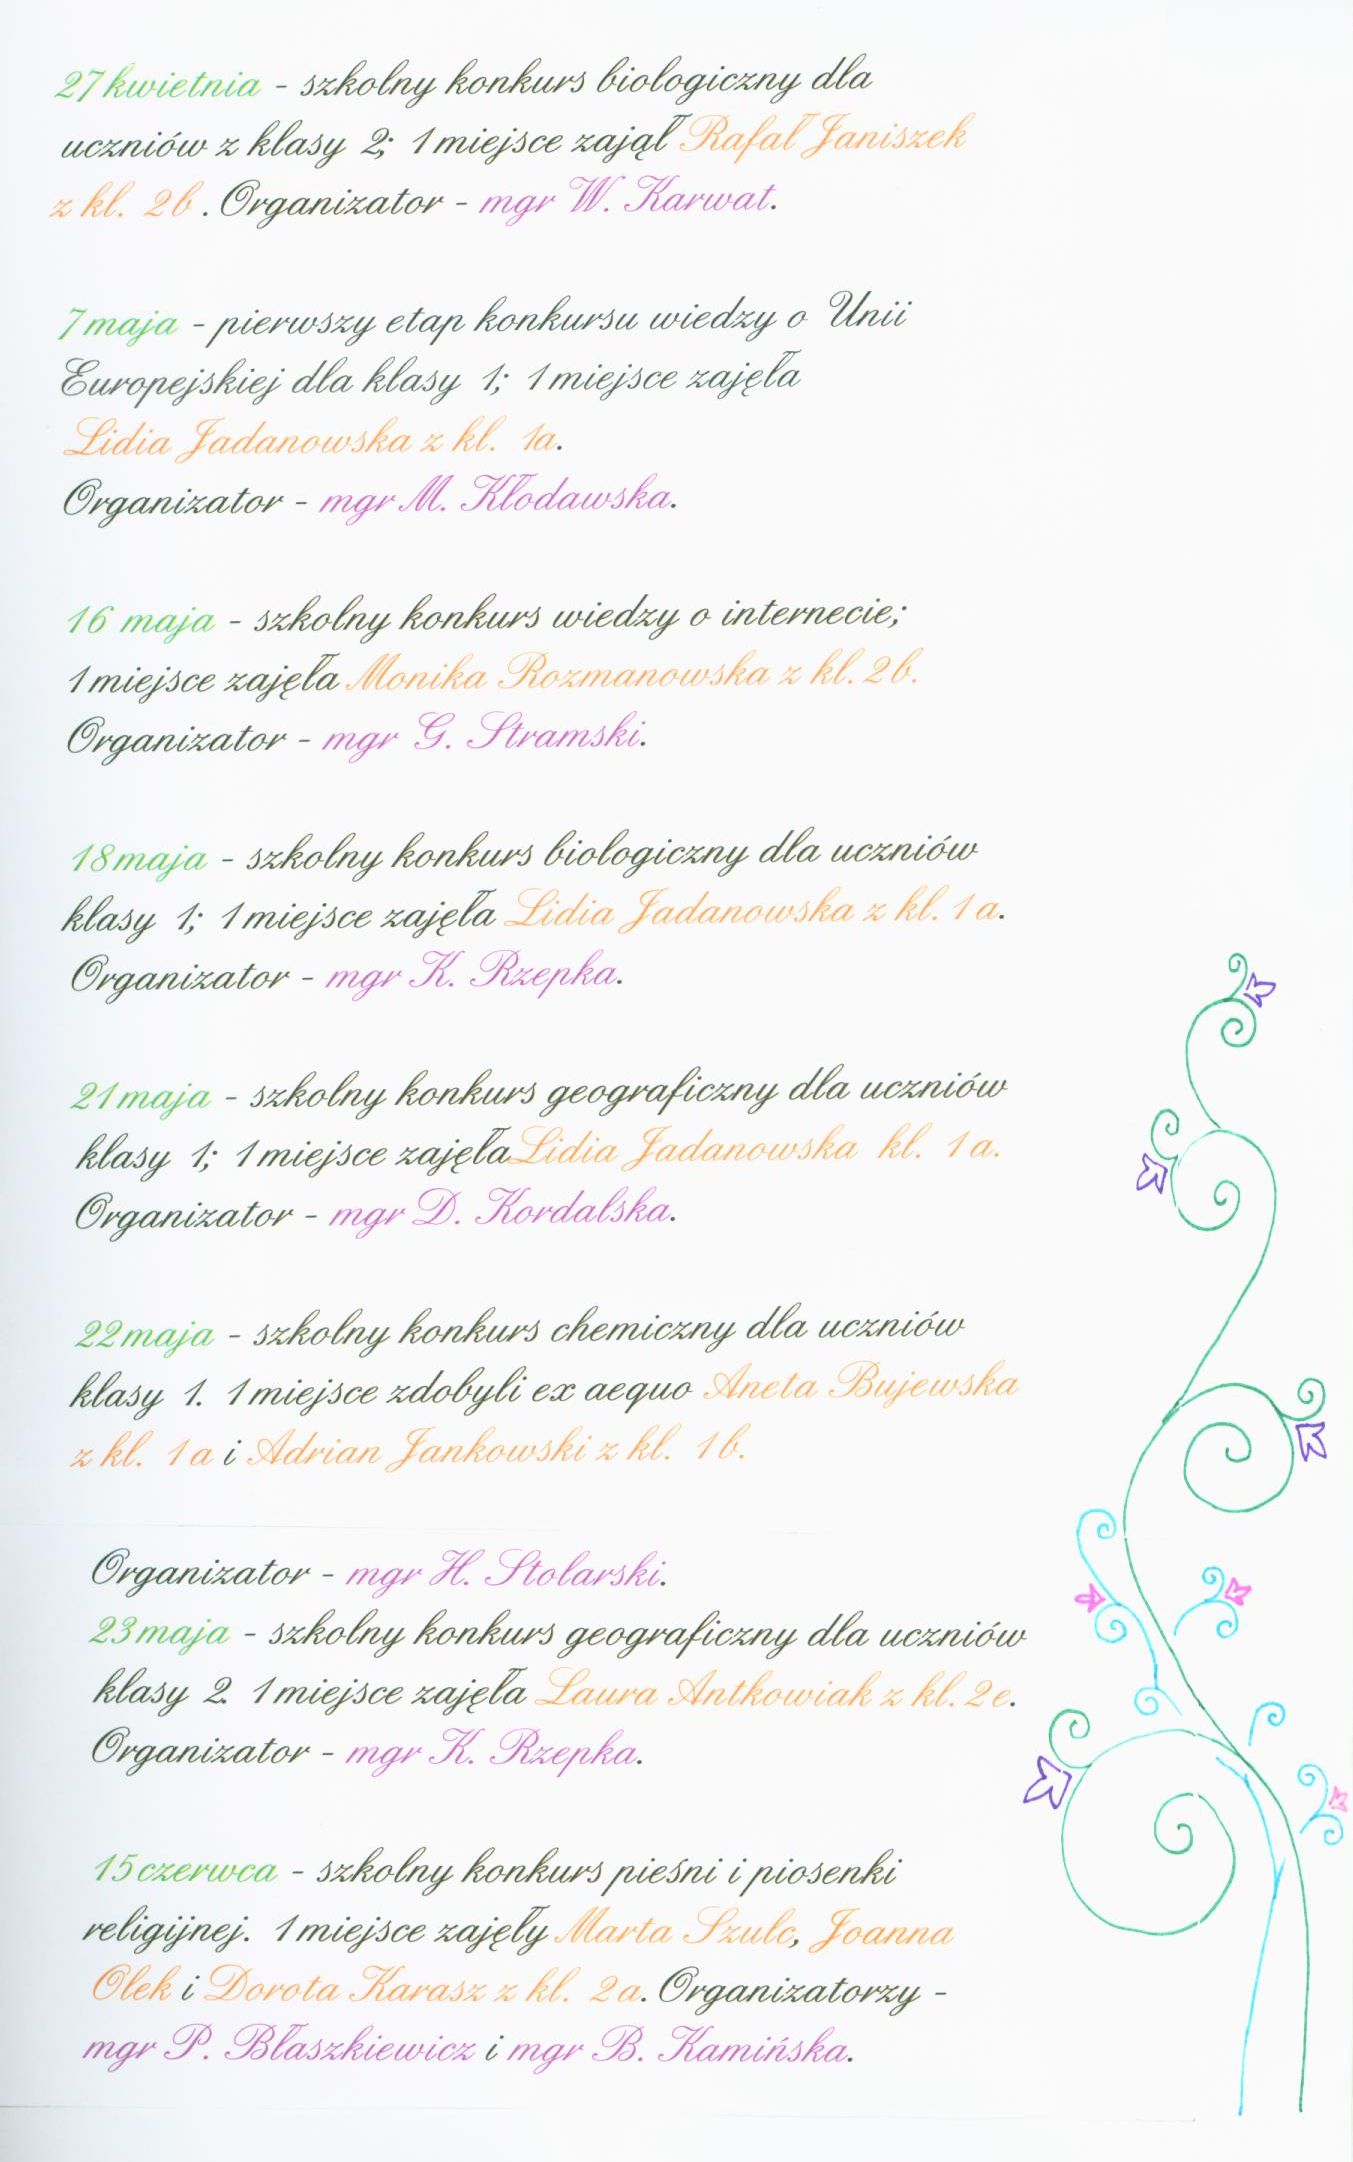 27 kwietnia - szkolny konkurs biologiczny dla
uczniów z klasy 2; 1 miejsce zajął Rafał Janiszek
z kl. 2b. Organizator - mgr W. Karwat.
7 maja - pierwszy etap konkursu wiedzy o Unii
Europejskiej dla klasy 1; 1 miejsce zajęła
Lidia Jadanowska z kl. 1a.
Organizator - mgr M. Kłodawska.
16 maja - szkolny konkurs wiedzy o internecie;
1 miejsce zajęła Monika Rozmanowska z kl. 2b.
Organizator - mgr G. Stramski.
18 maja - szkolny konkurs biologiczny dla uczniów
klasy 1; 1 miejsce zajęła Lidia Jadanowska z kl. 1a.
Organizator - mgr K. Rzepka.
21 maja - szkolny konkurs geograficzny dla uczniów
klasy 1; 1 miejsce zajęła Lidia Jadanowska kl. 1a.
Organizator - mgr D. Kordalska.
22 maja - szkolny konkurs chemiczny dla uczniów
klasy 1. 1 miejsce zdobyli ex aequo Aneta Bujewska
z kl. 1a i Adrian Jankowski z kl. 1b.
Organizator - mgr H. Stolarski.
23 maja - szkolny konkurs geograficzny dla uczniów
klasy 2. 1 miejsce zajęła Laura Antkowiak z kl. 2e.
Organizator - mgr K. Rzepka.
15 czerwca - szkolny konkurs pieśni i piosenki
religijnej. 1 miejsce zajęły Marta Szulc, Joanna
Olek i Dorota Karasz z kl. 2a. Organizatorzy -
mgr P. Błaszkiewicz i mgr B. Kamińska.